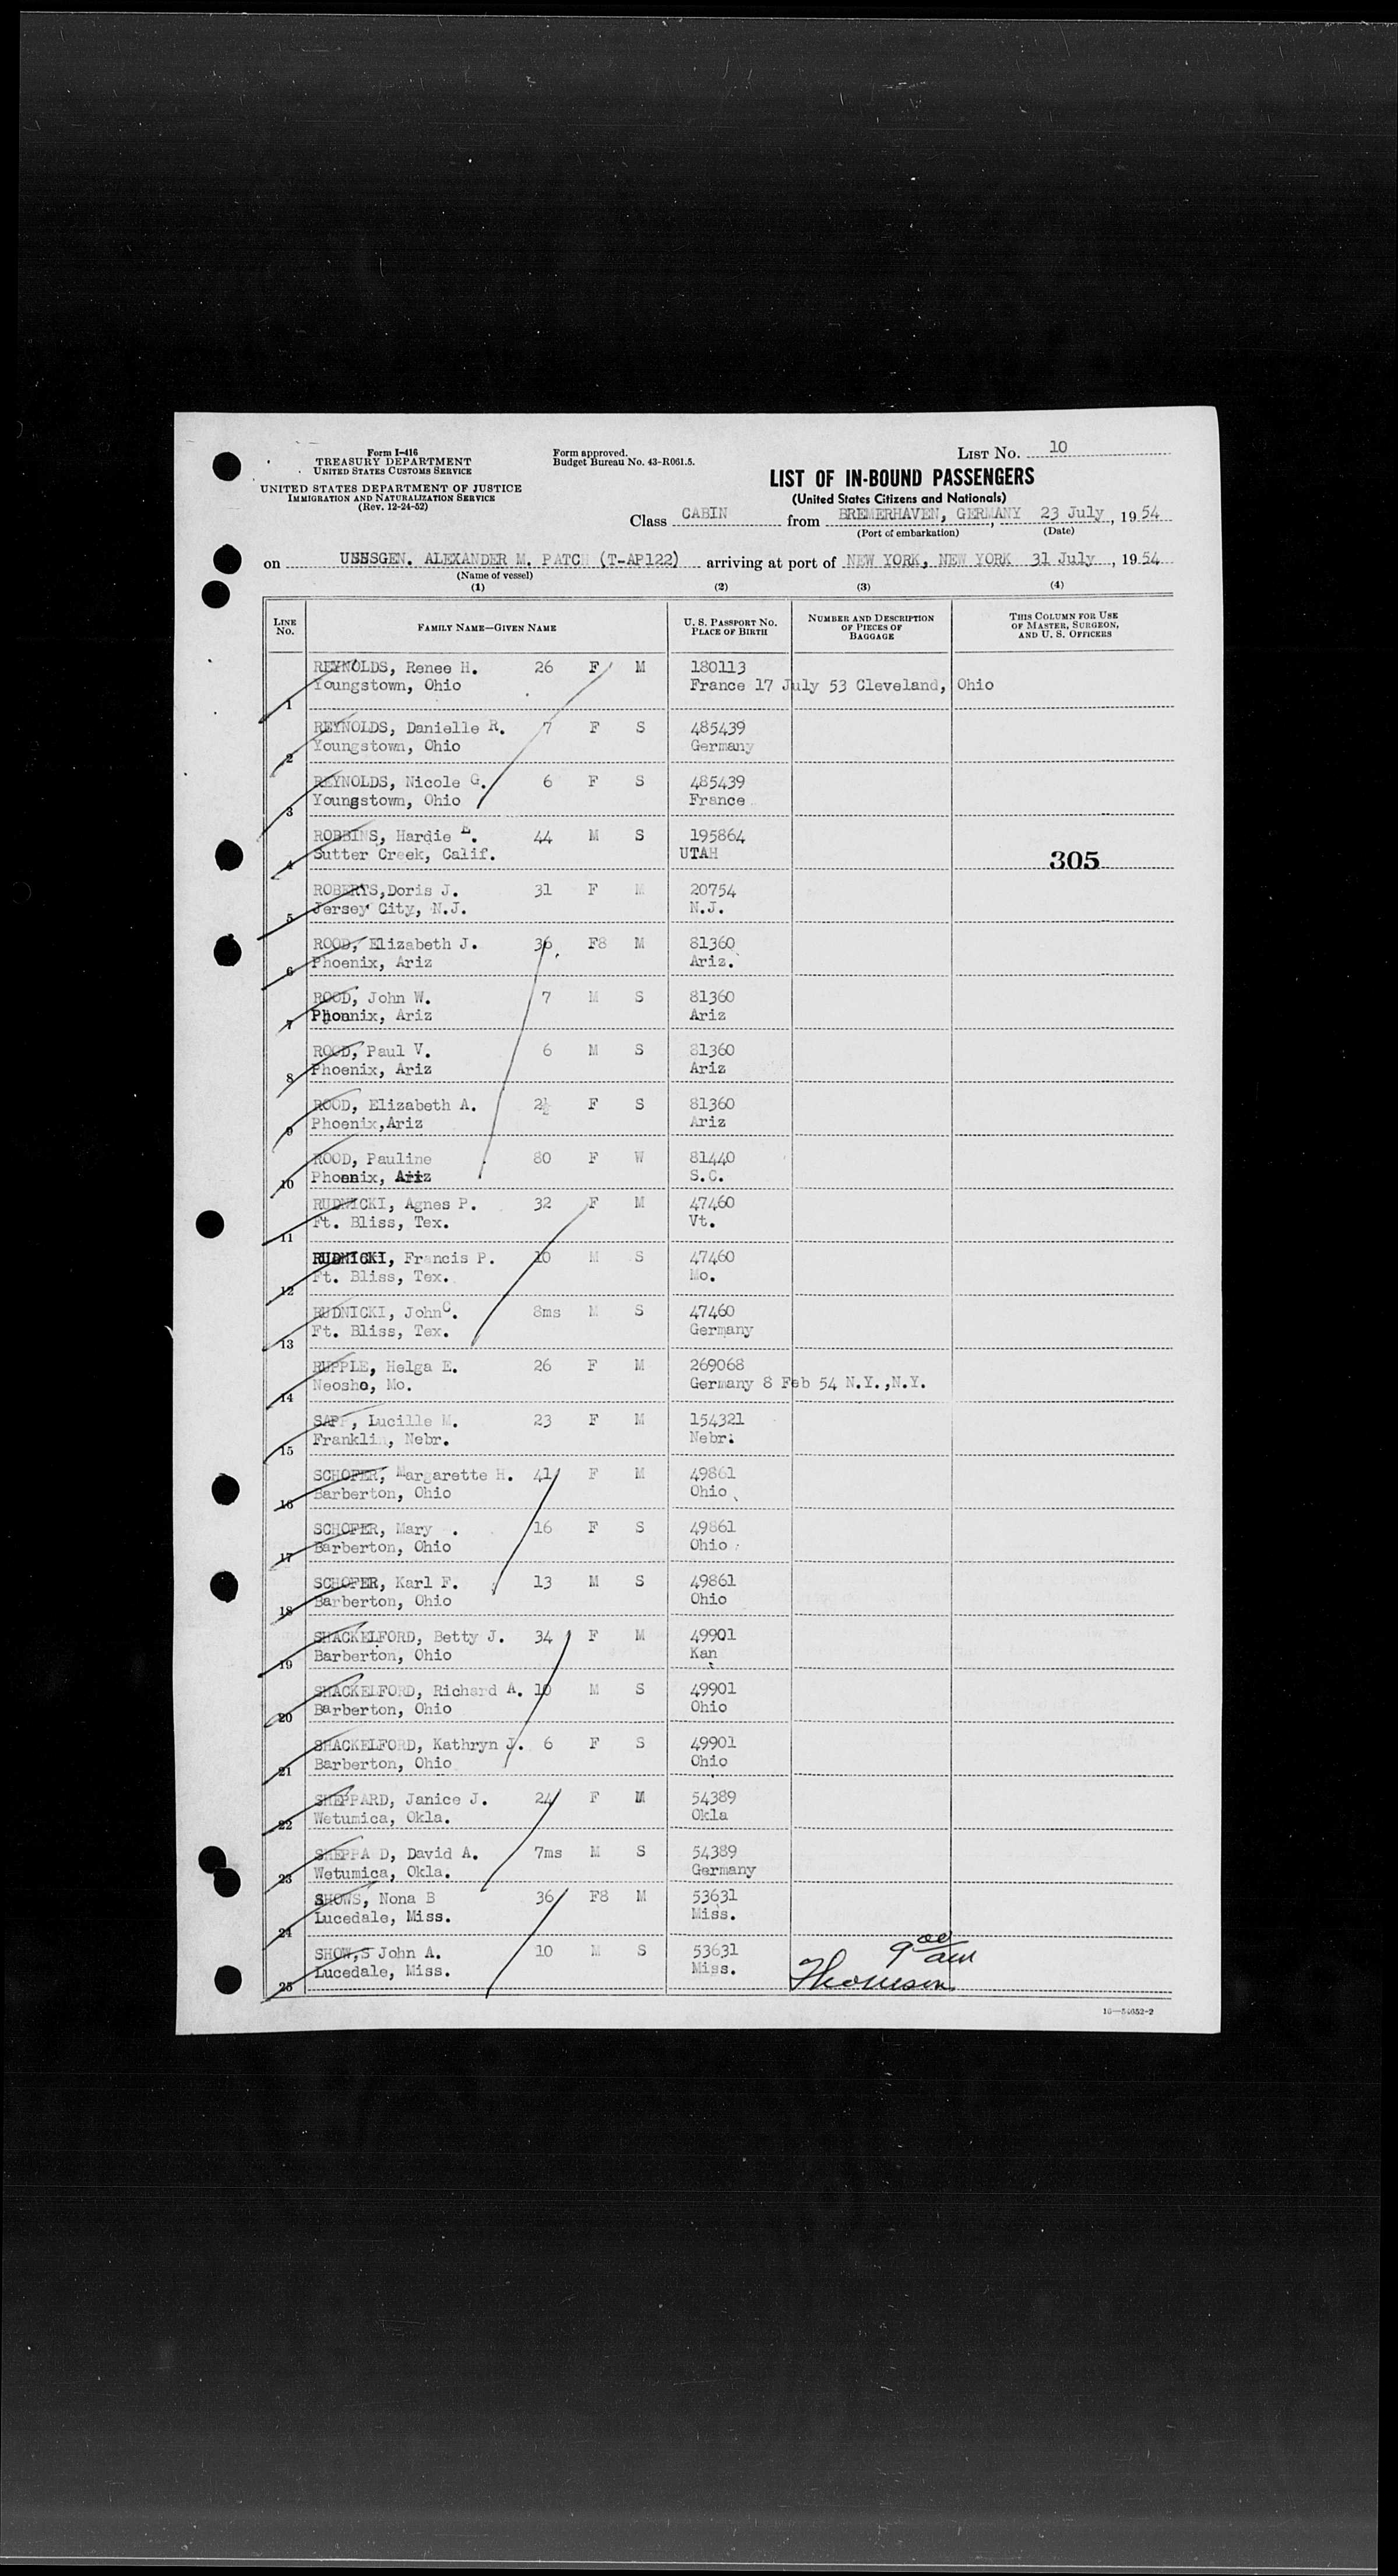 Form I-416
TREASURY DEPARTMENT
UNITED STATES CUSTOMS SERVICE
UNITED STATES DEPARTMENT OF JUSTICE
IMMIGRATION AND NATURALIZATION SERVICE
(Rev. 12-24-52)
Form approved.
Budget Bureau No. 43-R061.5.
LIST NO. 10
LIST OF IN-BOUND PASSENGERS
(United States Citizens and Nationals)
Class CABIN from BREMERHAVEN, GERMANY, 23 July, 1954
(Port of embarkation) (Date)
on USNSGEN. ALEXANDER M. PATCH (T-AP122) arriving at port of NEW YORK, NEW YORK 31 July, 1954
(Name of vessel)
(1) (2) (3) (4)
LINE NO. FAMILY NAME—GIVEN NAME U. S. PASSPORT NO. PLACE OF BIRTH NUMBER AND DESCRIPTION OF PIECES OF BAGGAGE THIS COLUMN FOR USE OF MASTER, SURGEON, AND U. S. OFFICERS
REYNOLDS, Renee H. 26 F M 180113
1 Youngstown, Ohio France 17 July 53 Cleveland, Ohio
REYNOLDS, Danielle R. 7 F S 485439
2 Youngstown, Ohio Germany
REYNOLDS, Nicole G. 6 F S 485439
3 Youngstown, Ohio France
ROBBINS, Hardie E. 44 M S 195864
4 Sutter Creek, Calif. UTAH 305
ROBERTS,Doris J. 31 F M 20754
5 Jersey City, N.J. N.J.
ROOD, Elizabeth J. 36 F8 M 81360
6 Phoenix, Ariz Ariz.
ROOD, John W. 7 M S 81360
7 Phoenix, Ariz Ariz
ROOD, Paul V. 6 M S 81360
8 Phoenix, Ariz Ariz
ROOD, Elizabeth A. 2½ F S 81360
9 Phoenix,Ariz Ariz
ROOD, Pauline . 80 F W 81440
10 Phoenix, Ariz S.C.
RUDNICKI, Agnes P. 32 F M 47460
11 Ft. Bliss, Tex. Vt.
RUDNICKI, Francis P. 10 M S 47460
12 Ft. Bliss, Tex. Mo.
RUDNICKI, John C. 8ms M S 47460
13 Ft. Bliss, Tex. Germany
RUPPLE, Helga E. 26 F M 269068
14 Neosho, Mo. Germany 8 Feb 54 N.Y.,N.Y.
SAPP, Lucille M. 23 F M 154321
15 Franklin, Nebr. Nebr.
SCHOFER, Margarette H. 41 F M 49861
16 Barberton, Ohio Ohio
SCHOFER, Mary . 16 F S 49861
17 Barberton, Ohio Ohio
SCHOFER, Karl F. 13 M S 49861
18 Barberton, Ohio Ohio
SHACKELFORD, Betty J. 34 F M 49901
19 Barberton, Ohio Kan
SHACKELFORD, Richard A. 10 M S 49901
20 Barberton, Ohio Ohio
SHACKELFORD, Kathryn J. 6 F S 49901
21 Barberton, Ohio Ohio
SHEPPARD, Janice J. 24 F M 54389
22 Wetumica, Okla. Okla
SHEPPA D, David A. 7ms M S 54389
23 Wetumica, Okla. Germany
SHOWS, Nona B 36 F8 M 53631
24 Lucedale, Miss. Miss.
SHOW,S John A. 10 M S 53631 9 00 am
25 Lucedale, Miss. Miss. Thomson
16—54652-2